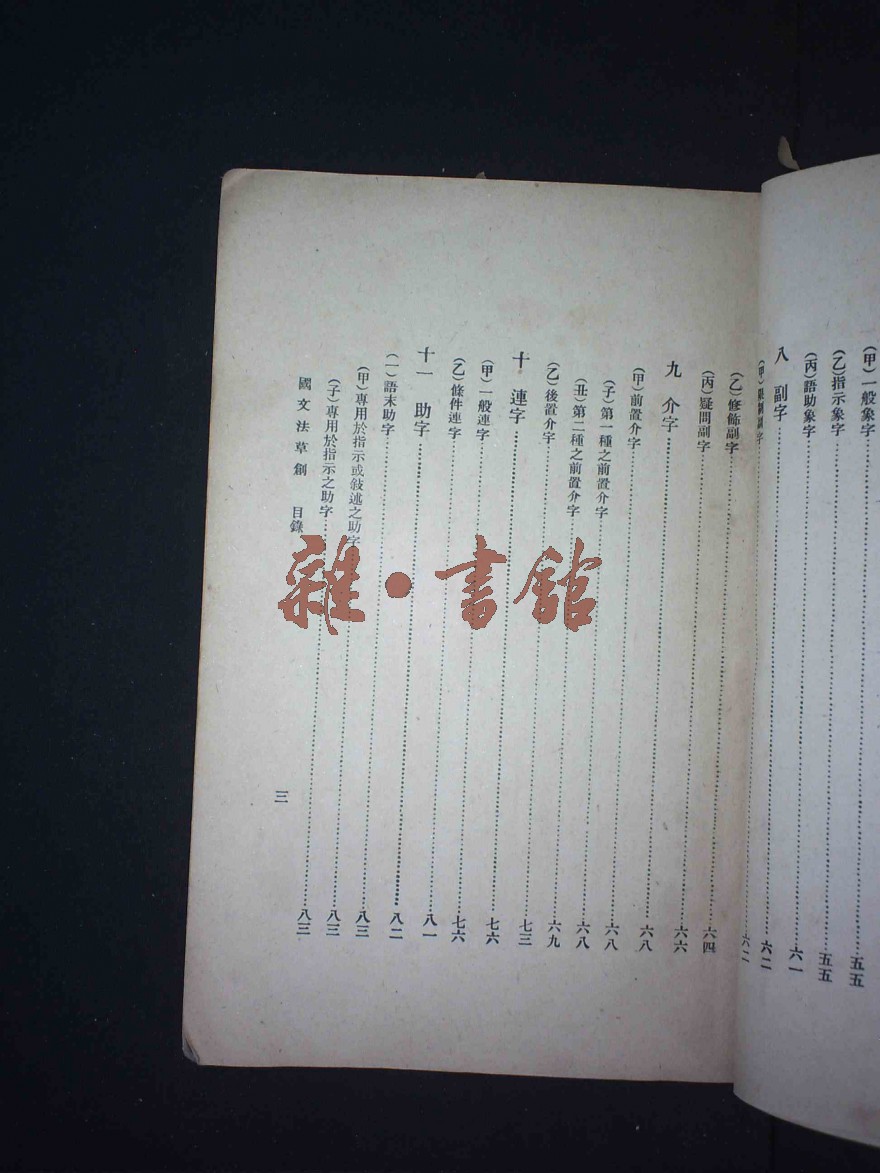 (甲)一般象字……五五
(乙)指示象字……五五
(丙)語助象字……六一
八 副字……六二
(甲)限制副字……六二
(乙)修飾副字……六四
(丙)疑問副字……六六
九 介字……六八
(甲)前置介字……六八
(子)第一種之前置介字……六八
(丑)第二種之前置介字……六九
(乙)後置介字……七三
十 連字……七六
(甲)一般連字……七六
(乙)條件連字……八一
十一 助字……八二
(一)語末助字……八三
(甲)專用於指示或敍述之助字……八三
(子)專用於指示之助字……八三
國文法草創 目錄 三
雜·書館